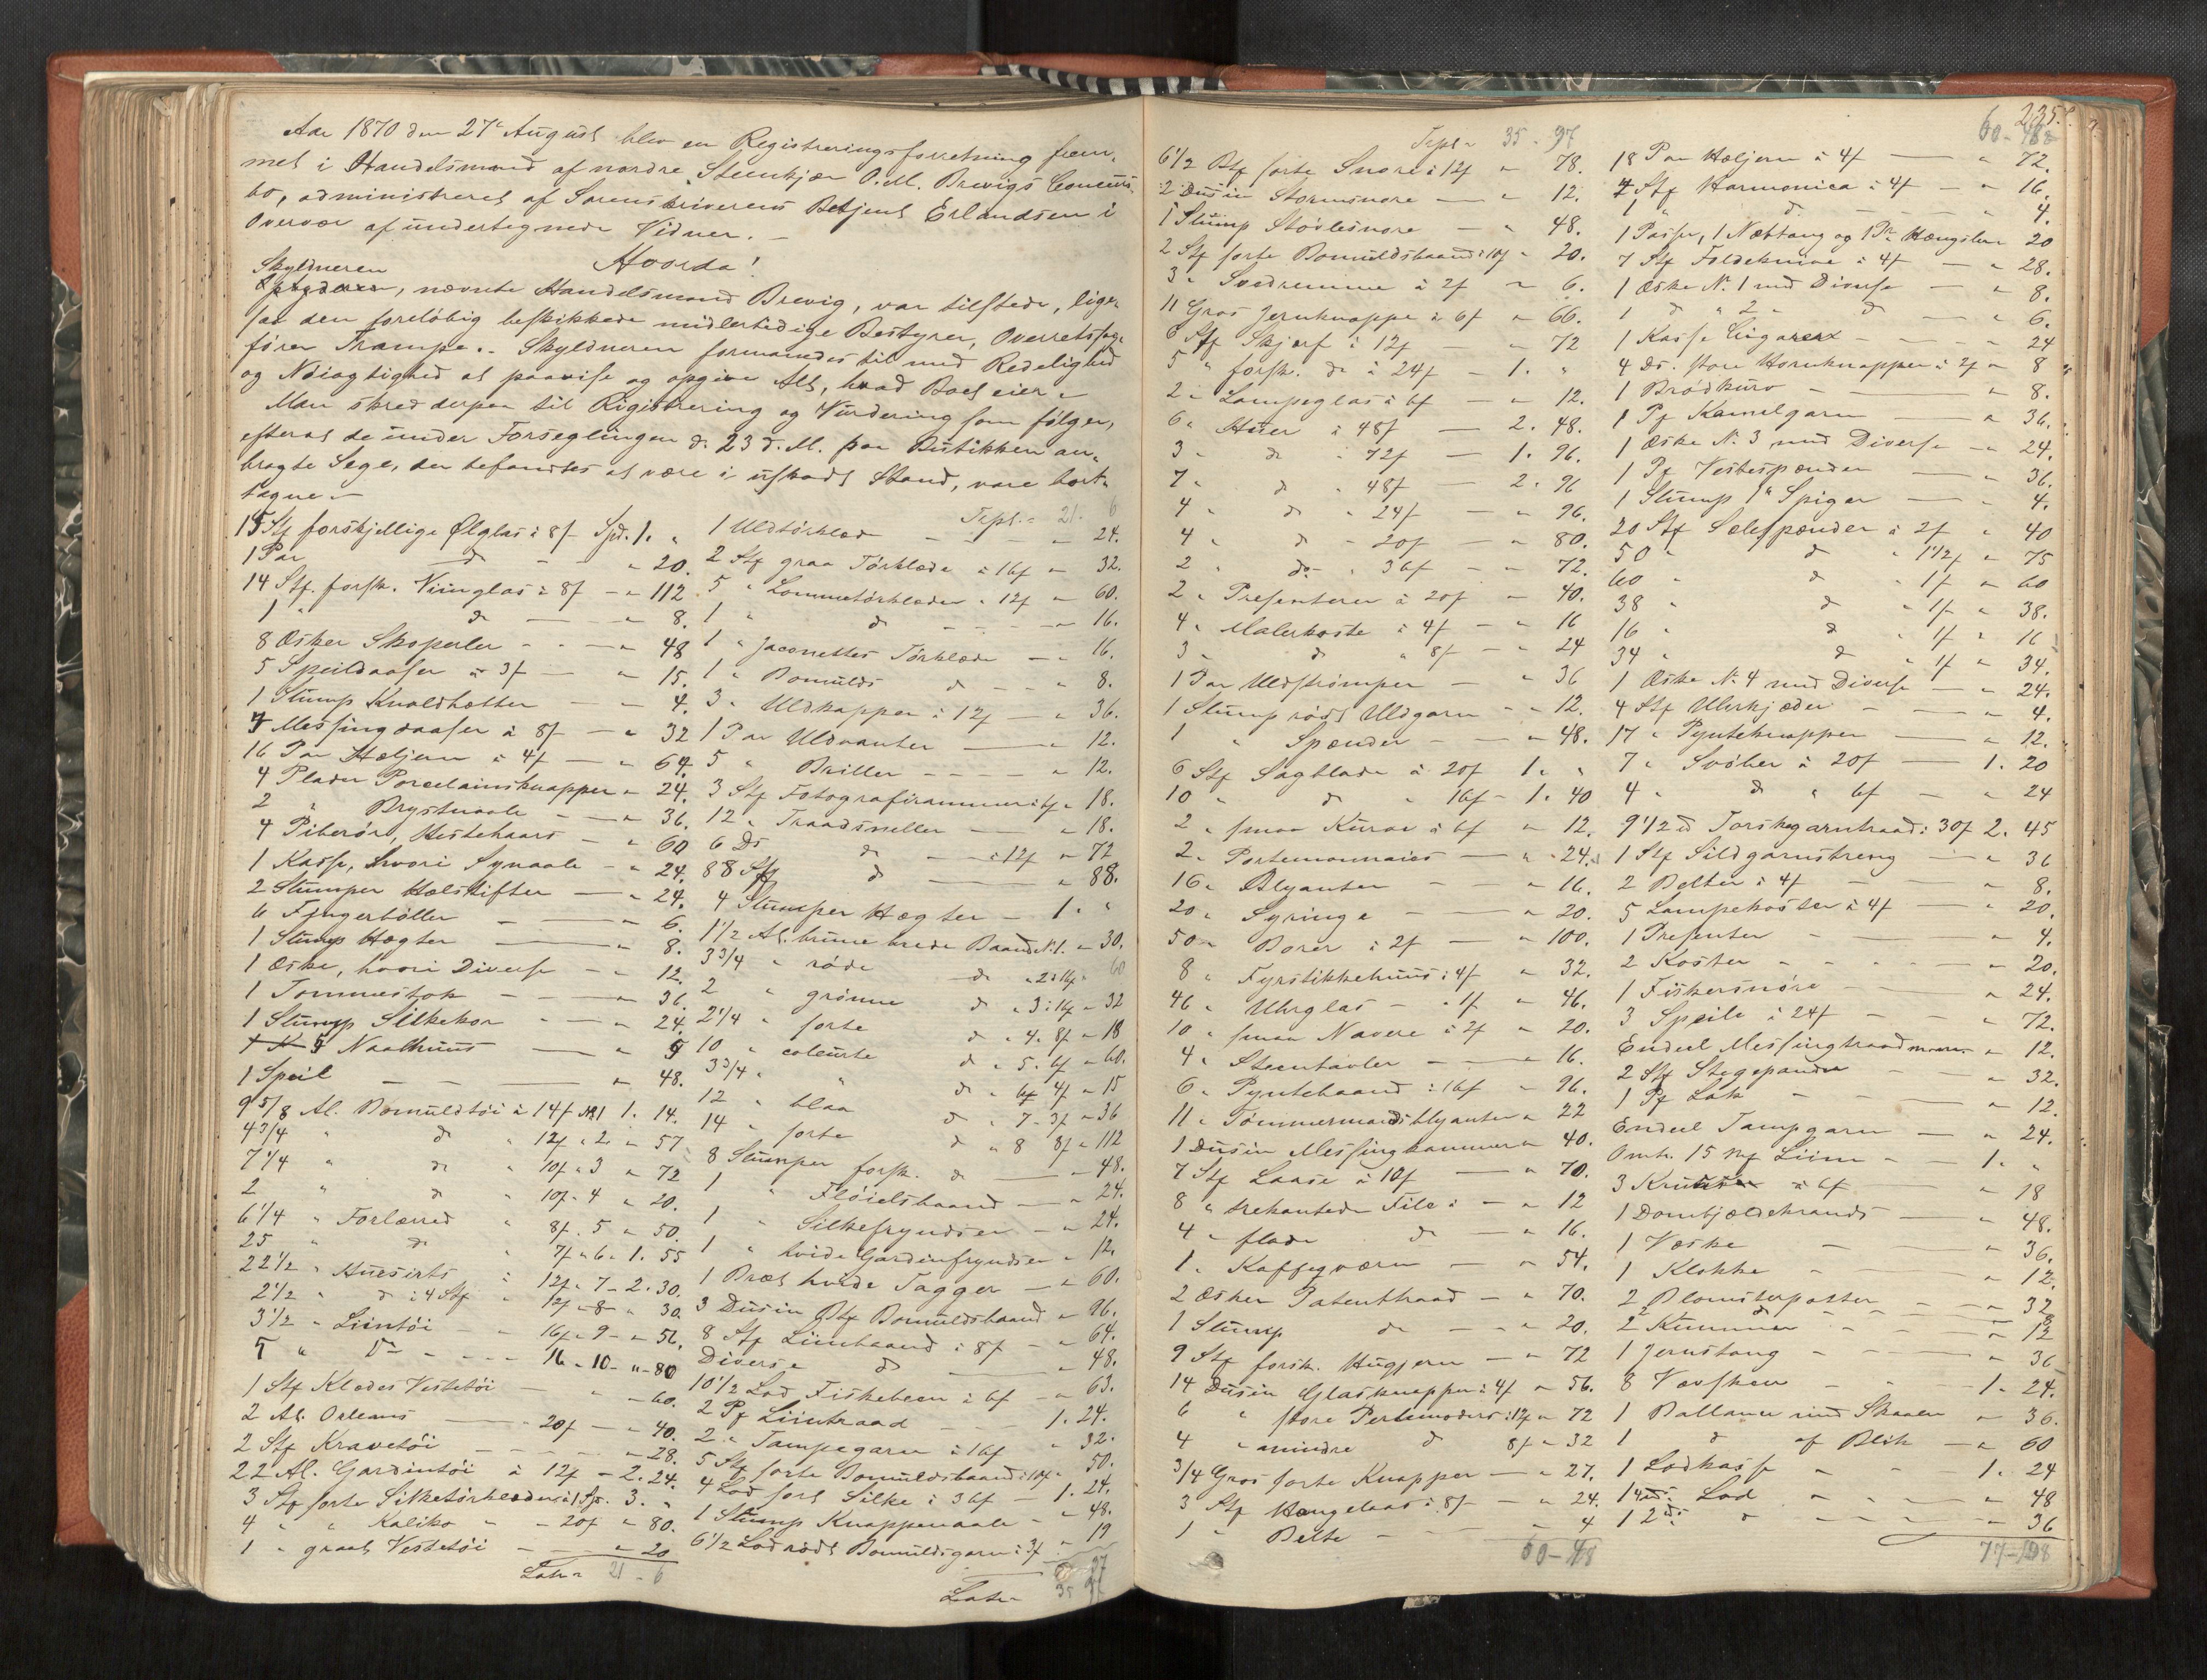 Aar 1870 den 27de August blev en Registreringsforretning frem-
met i Handelsmand af nordre Steenkjær O. M. Brevigs Concurs-
bo, administreret af Sorenskriverens Betjent Erlandsen i
Overvær af undertegnede Vidner. –
Hvorda!
Skyldneren
, nævnte Handelsmand Brevig, var tilstede, lige-
saa den foreløbig beskikkede midlertidige Bestyrer, Overretssag-
fører Trampe. – Skyldneren formanedes til med Redelighed
og Nøiagtighed at paavise og opgive Alt, hvad Boet eier. –
Man skred derpaa til Rigistrering og Vurdering som følger,
efterat de under Forseglingen d. 23 d. M. paa Butikken an-
bragte Segl, der befandtes at være i uskadt Stand, vare bort-
tagne. –
15 Stk forskjellige Ølglas à 8 f Spd. 1. "
1 Par d – " 20.
14 Stk. forsk. Viinglas à 8 f – " 112
1 " d – " 8.
8 Æsker Skoperler – " 48
5 Speildaaser à 3 f – " 15.
1 Stump Knoldhætter – " 4.
4 Messingdaaser à 8 f – " 32
16 Par Hæljern à 4 f – " 64.
4 Plader Porcelainsknapper " 24.
2 " Brystnaale – " 36.
4 Piberør, Hestehaars – " 60
1 Kasse, hvori Synaale – " 24.
2 Stumper Hælstifter – " 24.
6 Fingerbøller – " 6.
1 Stump Hægter – " 8.
1 Æske, hvori Diverse – " 12.
1 Tommestok – " 36.
1 Stump Silkekor – " 24.
9 Naalhuus – " 9
1 Speil – " 48.
9 5/8 Al. Bomuldtøi à 14 f N1 1. 14.
4 3/4 " d " 12 f " 2 " 57
7 1/4 " d " 10 f " 3 " 72
2 " d " 10 f " 4 " 20.
6 1/4 " Forlærred " 8 f " 5 " 50.
25 " d " 7 f " 6 " 1. 55
22 1/2 " Huesirts " 12 f " 7 – 2. 30.
2 1/2 " d i 4 Stk " 12 f " 8 – " 30.
3 1/2 " Liintøi " 16 f " 9 – " 56.
5 " Do – 16 " 10 – " 80
1 Stk Klædes Vestetøi – " 60.
2 Al. Orleans – 20 f – " 40.
2 Stk Kravetøi – " 28.
22 Al. Gardintøi à 12 f – 2. 24.
3 Stk sorte Silketørklæder à 1 Sp. 3. "
4 " " Kaliko " – 20 f " 80.
1 " graat Vestetøi – " 20
Lats " 21 – 6
Trpt. " 21. 6
1 Uldtørklæd – " 24.
2 Stk graa Tørklæde à 16 f " 32.
5 " Lommetørklæder " 12 f " 60.
1 " d – " 16.
1 " Jaconettes Tørklæde – " 16.
1 " Bomulds d – " 8.
3 " Uldkapper à 12 f " 36.
1 Par Uldvanter – " 12.
5 " Briller – " 12.
3 Stk Fotografirammer à 6 f " 18.
12 " Traadsneller – " 18.
6 Ds d – à 12 f " 72
88 Stk d – " 88.
4 Stumper Hægter – 1. "
1 1/2 Al. brune brede Baand N. 1. " 30.
3 3/4 " røde d " 2 à 16 f " 60
2 " grønne d " 3 à 16 " 32
2 1/4 " sorte d " 4. 8 f " 18
10 " coleurte d " 5. 6 f " 60.
3 3/4 " " d " 6 4 f " 15
12 " blaa d " 7 – 3 f " 36
14 " sorte d " 8 8 f " 112
8 Stumper forsk. d – " 48.
1 " Fløielsbaand – " 24.
1 " Silkefryndser – " 24.
1 " hvide Gardinfryndser " 12.
1 Bræt hvide Tagger – " 60.
3 Dusin Btk Bomuldsbaand " 96.
8 Stk Liinbaand à 8 f – " 64.
Diverse d – " 48.
10 1/2 Lod Fiskebeen à 6 f – " 63.
2 Pk Liintraad – 1. 24.
2 " Tampegarn à 16 f " 32.
5 Stk sorte Bomuldsbaand à 10 f " 50.
4 Lod sort Silke à 36 f – 1. 24.
1 Stump Knappenaale – " 48.
6 1/2 Lod rødt Bomuldsgarn à 3 f " 19
Lats " 35 97
225.
Trpt " 35 – 97
6 1/2 Btk sorte Snore à 12 f " 78.
2 Dusin Stormsnore – " 12.
1 Stump Støvlesnore – " 48.
2 Stk sorte Bomuldsbaand à 10 f " 20.
3 " Svedremme à 2 f " 6.
11 Gros Jernknappe à 6 f " 66.
6 Stk Skjerf à 12 f – " 72
5 " forsk. do à 24 f – 1. "
2 " Lampeglas à 6 f – " 12.
6 " Huer à 48 f – 2. 48.
3 " d " 72 f – 1. 96.
7 " d " 48 f – 2. 96
4 " d " 24 f – " 96.
4 " d – 20 f – " 80.
2 " do " 36 f – " 72.
2 " Presenterer à 20 f – " 40.
4 " Malerkoste à 4 f – " 16
3 " d " 8 f – " 24
1 Par Uldstrømper – " 36
1 Stump rødt Uldgarn – " 12.
1 " Spænder – " 48.
6 Stk Sagblade à 20 f 1. "
10 " d " 16 f – 1. 40
2 " smaa Kurve à 6 f " 12.
2 " Portemonnaies – " 24.
16 " Blyanter – " 16.
20 " Syringe – " 20.
50 " Borer à 2 f – " 100.
8 " Fyrstikkehuus à 4 f " 32.
46 " Uhrglas – " 1 f " 46.
10 " smaa Navere à 2 f " 20.
4 " Steentavler – " 16.
6 " Pyntebaand à 16 f " 96.
11 " Tømmermandsblyanter " 22
1 Dusin Messingkammer " 40.
7 Stk Laase à 10 f – " 70.
8 " trekantede File – " 12
4 " flade do – " 16.
1 " Kaffeqværn – " 54.
2 Æsker Patenttraad – " 70.
1 Stump do – " 20.
9 Stk forsk. Hugjern – " 72
14 Dusin Glasknapper à 4 f " 56.
6 " store Perlemoders à 12 f " 72
4 " mindre d 8 f " 32
3/4 Gros sorte Knapper – " 27.
3 Stk Hængelaas à 8 f – " 24.
1 " Belte – " 4
60 – 48
60 – 48
18 Par Hæljern à 4 f – " 72.
4 Stk Harmonica à 4 f – " 16.
1 " d – " 4.
1 Passer, 1 Næbtang og 1 Pr Hængsler 20
7 Stk Foldeknive à 4 f – " 28.
1 Æske N. 1 med Diverse – " 8.
1 d " 2 " d " 6.
1 Kasse Cigarer – " 24
4 Ds. store Hornknapper à 2 f " 8
1 Brødkurv – " 8.
1 Pk Kamelgarn – " 36.
1 Æske N. 3 med Diverse – " 24.
1 Pk Vestespænder – " 36.
1 Stump 1" Spiger – " 4.
20 Stk Selespænder à 2 f " 40
50 " d " 1 1/2 f " 75
60 " d " 1 f " 60
38 " d " 1 f " 38.
16 " d " 1 f " 16
34 " d " 1 f " 34.
1 Æske N. 4 med Diverse – " 24.
4 Stk Uhrkjæder – " 4.
17 " Pynteknapper – " 12.
7 " Svøber à 20 f – 1. 20
4 " d " 6 f – " 24
9 1/2 Torskegarntraad à 30 f 2. 45
1 Stk Sildgarnstreng – " 36
2 Belter à 4 f – " 8.
5 Lampekoster à 4 f – " 20.
1 Presenter – " 4.
2 Koster – " 20.
1 Fiskersnøre – " 24.
3 Speile à 24 f – " 72.
Endeel Messingtraad " 12.
2 Stk Stegepander – " 32.
1 Pk Lak – " 12.
Endeel Tampgarn – " 24.
Omtr. 15 Mk Liim – 1. "
3 à 6 f – " 18
1 Dombjældekrands – " 48.
1 Væske – " 36.
1 Klokke – " 12.
2 Blomsterpotter – " 32
2 d – " 8
2 Kummer – " 12
1 Jernstang – " 36
8 – 1. 24.
1 Ballance med Skaaler " 36.
1 d af Blik – " 60
1 Lodkasse – 1. 24
1 4 Lod – " 48
1 2 d – " 36
77 – 108